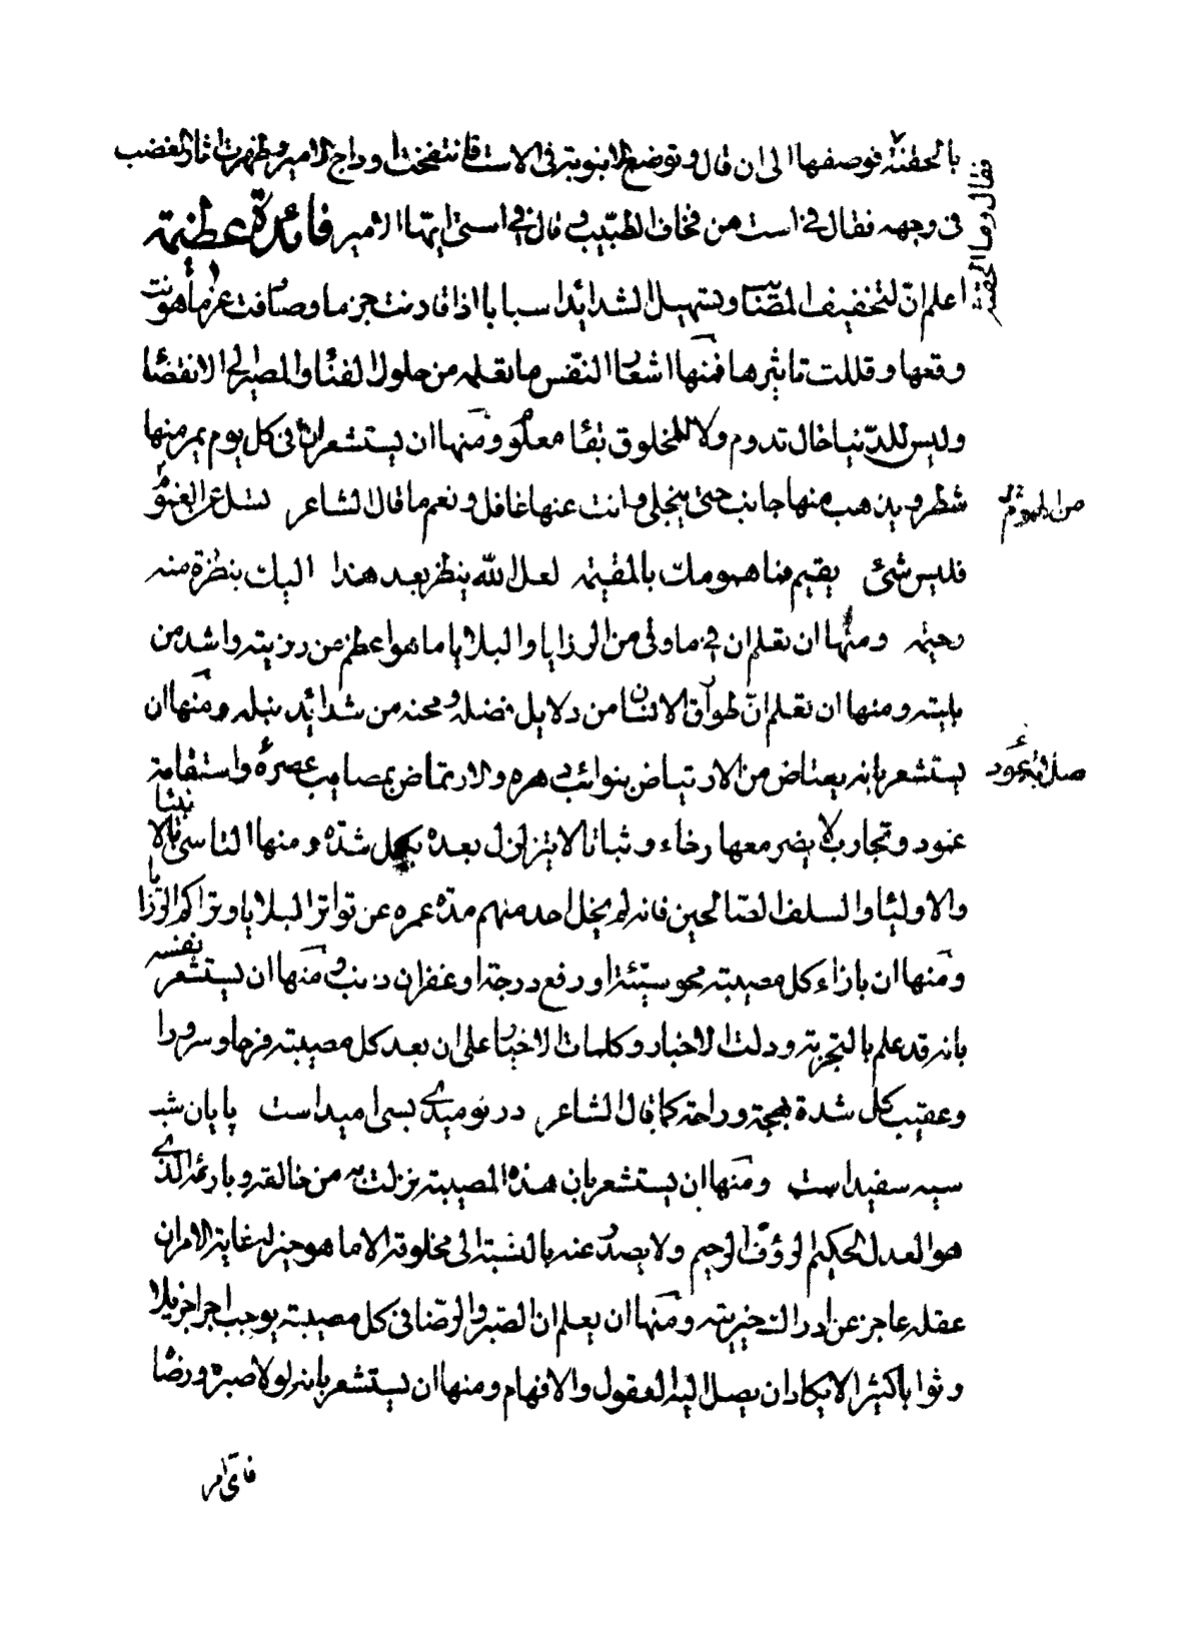 بالحقنة فوصفها الى ان قال وتوضع الانبوبة فى الاست فانتفخت اوداج الامير وظهرت اثار الغضب
فقال وما الحقنة
فى وجهه فقال فى است من فخاف الطبيب وقال فى استى ايها الامير فائدة عظيمة
اعلم ان لتخفيف المصائب وتسهيل الشدائد اسبابا اذا قارنت حزما وصادفت عزما هونت
وقعها وقللت تاثيرها فمنها اشعار النفس ما تعلمه من حلول الفناء والمصير الى الانقضاء
وليس للدنيا حال تدوم ولا للمخلوق بقاء معلوم ومنها ان يستشعر ان فى كل يوم يمر منها
شطر ويذهب منها جانب حتى ينجلى وانت عنها غافل ونعم ما قال الشاعر تسل عن الهموم
فليس شئ يقيم فما همومك بالمقيمه لعل الله ينظر بعد هذا اليك بنظرة منه
رحيمه ومنها ان تعلم ان فى ما وقى من الرزايا والبلايا ما هو اعظم من رزيته واشد من
بليته ومنها ان تعلم ان طوارق الانسان من دلايل فضله ومحنه من شدائد نبله ومنها ان
يستشعر بانه يعتاض من الارتياض بنوائب دهره والارتماض بمصايب عصره واستقامة
صلابة عود
عمود وتجارب لا يضر معها رخاء وثباتا لا يتزلزل بعده بكل شدة ومنها التاسى بالانبياء
والاولياء والسلف الصالحين فانه لم يخل احد منهم مدة عمره عن تواتر البلايا وتراكم الرزايا
ومنها ان بازاء كل مصيبة محو سيئة او رفع درجة او غفران ذنب ومنها ان يستشعر نفسه
بانه قد علم بالتجربة ودلت الاخبار وكلمات الاخيار على ان بعد كل مصيبة فرحا وسرورا
وعقيب كل شدة بهجة وراحة كما قال الشاعر در نوميدى بسى اميد است پايان شب
سيه سفيد است ومنها ان يستشعر بان هذه المصيبة نزلت به من خالقه وبارئه الذى
هو العدل الحكيم الرؤف الرحيم ولا يصدر عنه بالنسبة الى مخلوقه الا ما هو خير له غاية الامر ان
عقله عاجز عن ادراك خيريته ومنها ان يعلم ان الصبر والرضا فى كل مصيبة يوجب اجرا جزيلا
وثوابا كثيرا لا يكاد ان يصل اليه العقول والافهام ومنها ان يستشعر بانه لو لا صبره ورضاه
فاى امر